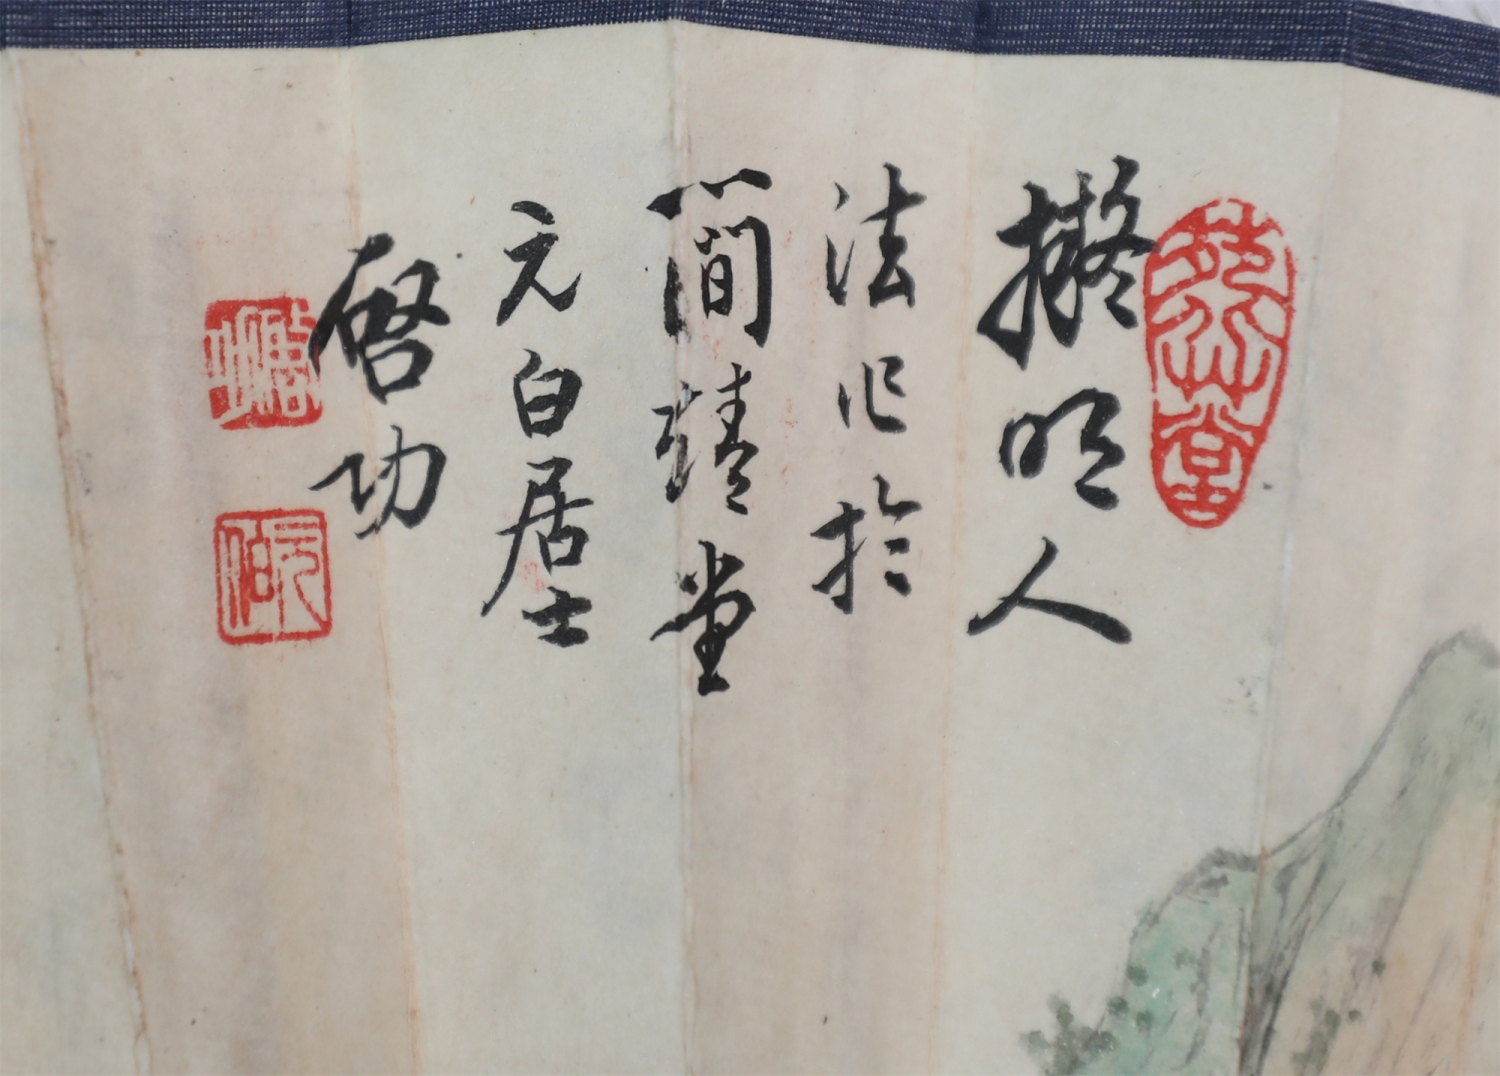 擬明人
法作於
簡靖堂
元白居士
啓功